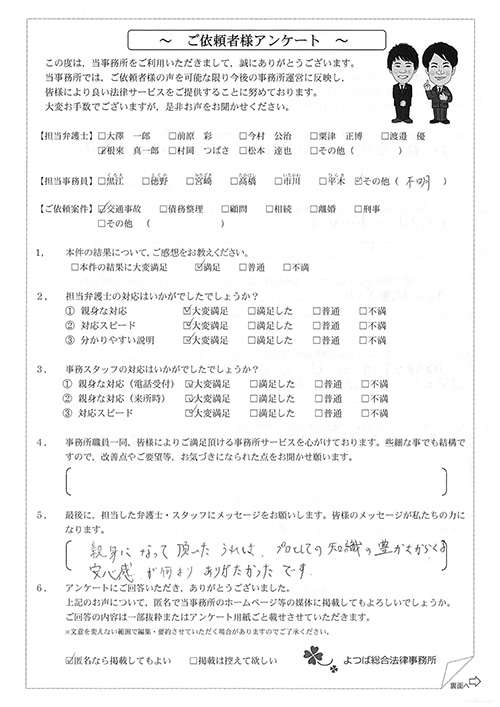 ～ ご依頼者様アンケート ～
この度は，当事務所をご利用いただきまして，誠にありがとうございます。
当事務所では，ご依頼者様の声を可能な限り今後の事務所運営に反映し，
皆様により良い法律サービスをご提供することに努めております。
大変お手数でございますが，是非お声をお聞かせください。
【担当弁護士】□大澤 一郎 □前原 彩 □今村 公治 □粟津 正博 □渡邉 優
☑根來 真一郎 □村岡 つばさ □松本 達也 □その他（ ）
【担当事務員】□黒江 □徳野 □宮﨑 □髙橋 □市川 □平木 ☑その他（ 不明 ）
【ご依頼案件】☑交通事故 □債務整理 □顧問 □相続 □離婚 □刑事
□その他 （ ）
1． 本件の結果について，ご感想をお教えください。
□本件の結果に大変満足 ☑満足 □普通 □不満
2． 担当弁護士の対応はいかがでしたでしょうか？
① 親身な対応 ☑大変満足 □満足した □普通 □不満
② 対応スピード ☑大変満足 □満足した □普通 □不満
③ 分かりやすい説明 ☑大変満足 □満足した □普通 □不満
3． 事務スタッフの対応はいかがでしたでしょうか？
① 親身な対応（電話受付） ☑大変満足 □満足した □普通 □不満
② 親身な対応（来所時） ☑大変満足 □満足した □普通 □不満
③ 対応スピード ☑大変満足 □満足した □普通 □不満
4． 事務所職員一同，皆様によりご満足頂ける事務所サービスを心がけております。些細な事でも結構で
すので，改善点やご要望等，お気づきになられた点をお聞かせ願います。
5． 最後に，担当した弁護士・スタッフにメッセージをお願いします。皆様のメッセージが私たちの力に
なります。
親身になって頂いた うれしさ，プロとしての知識の豊かさからくる
安心感 が何より ありがたかった です．
6． アンケートにご回答いただき，ありがとうございました。
上記のお声について，匿名で当事務所のホームページ等の媒体に掲載してもよろしいでしょうか。
ご回答の内容は一部抜粋またはアンケート用紙ごと載せさせていただきます。
※文意を変えない範囲で編集・要約させていただく場合がありますのでご了承ください。
☑匿名なら掲載してもよい □掲載は控えて欲しい よつば総合法律事務所
裏面へ⇨